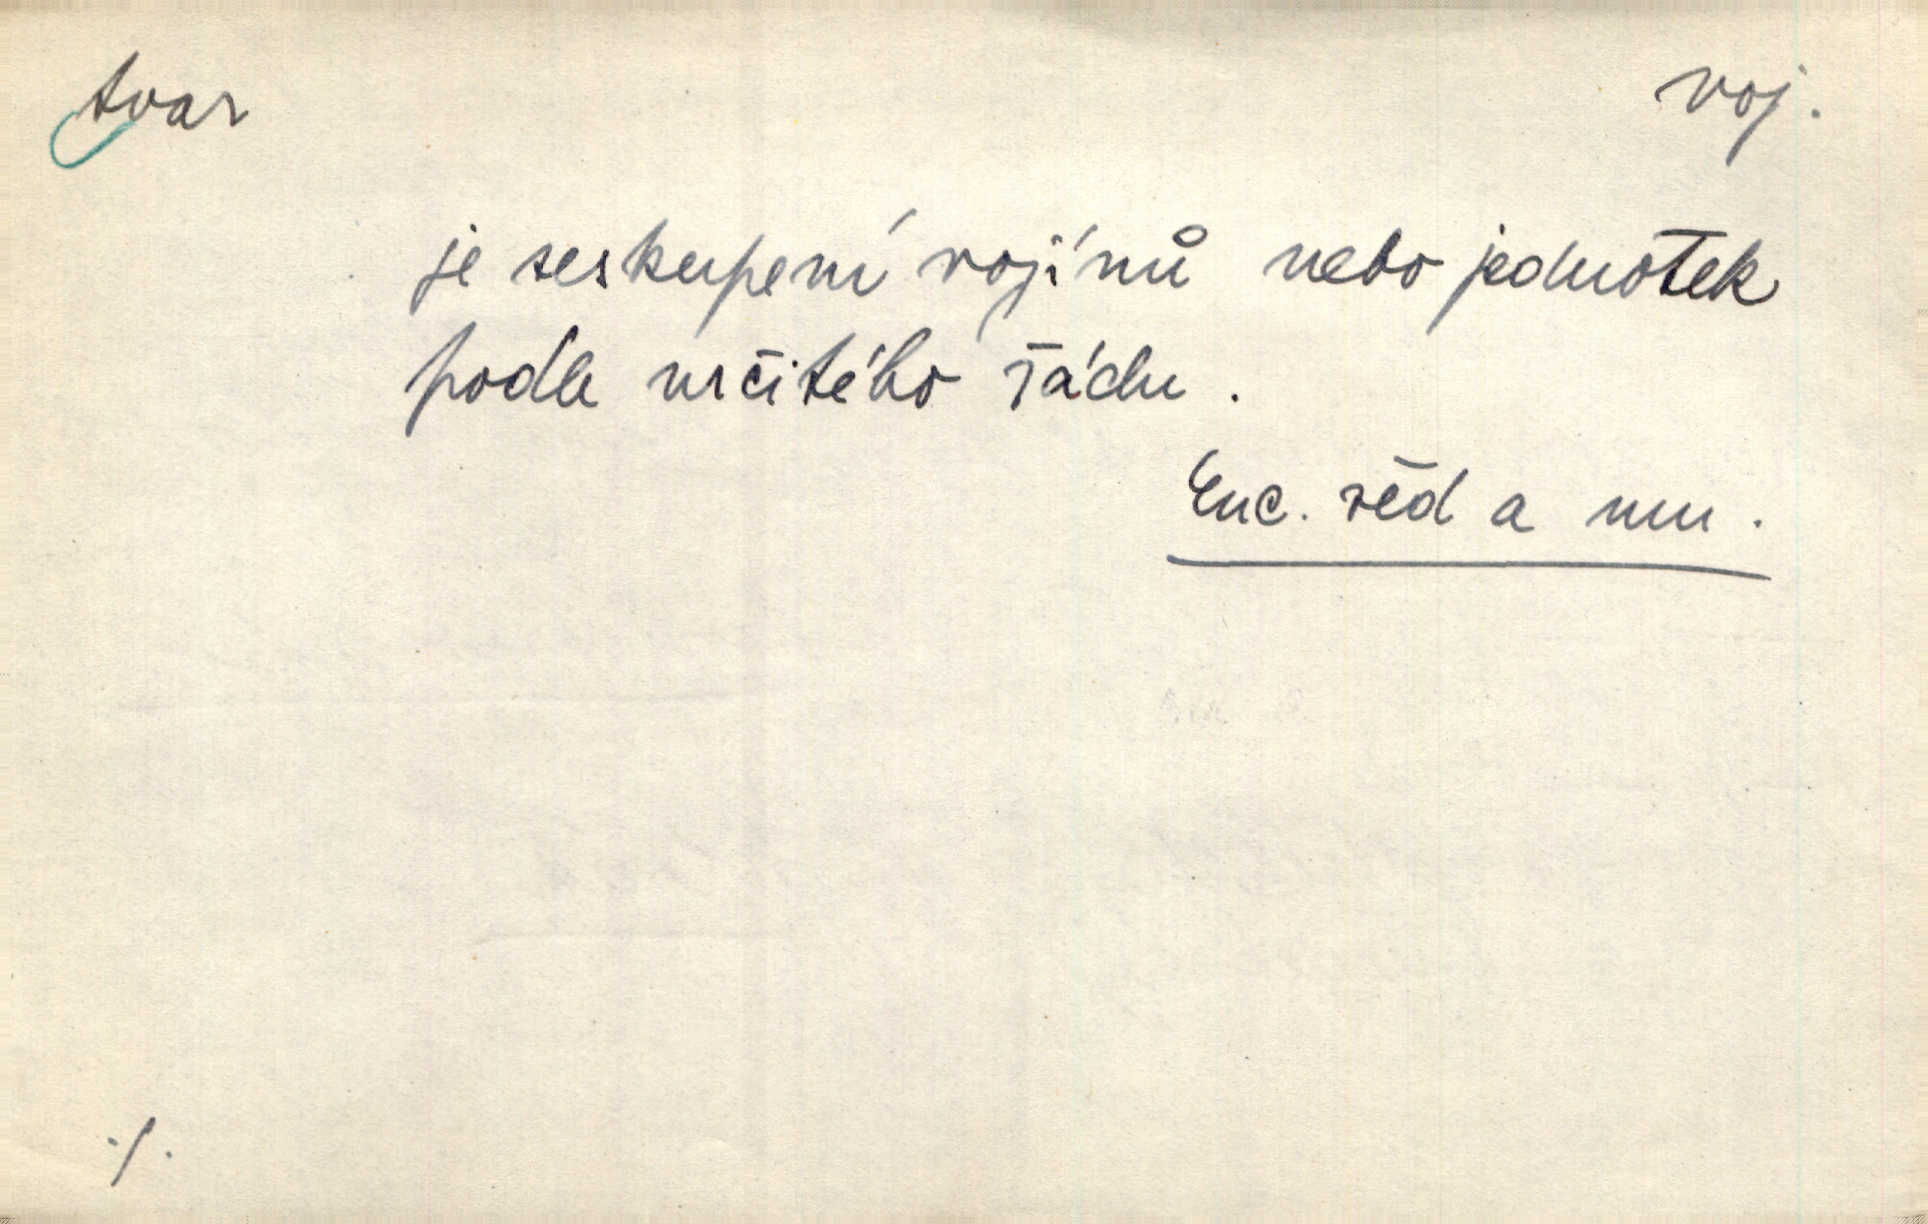 tvar voj.
je seskupení vojínů nebo jednotek
podle určitého řádu.
Enc. věd a um.
./.